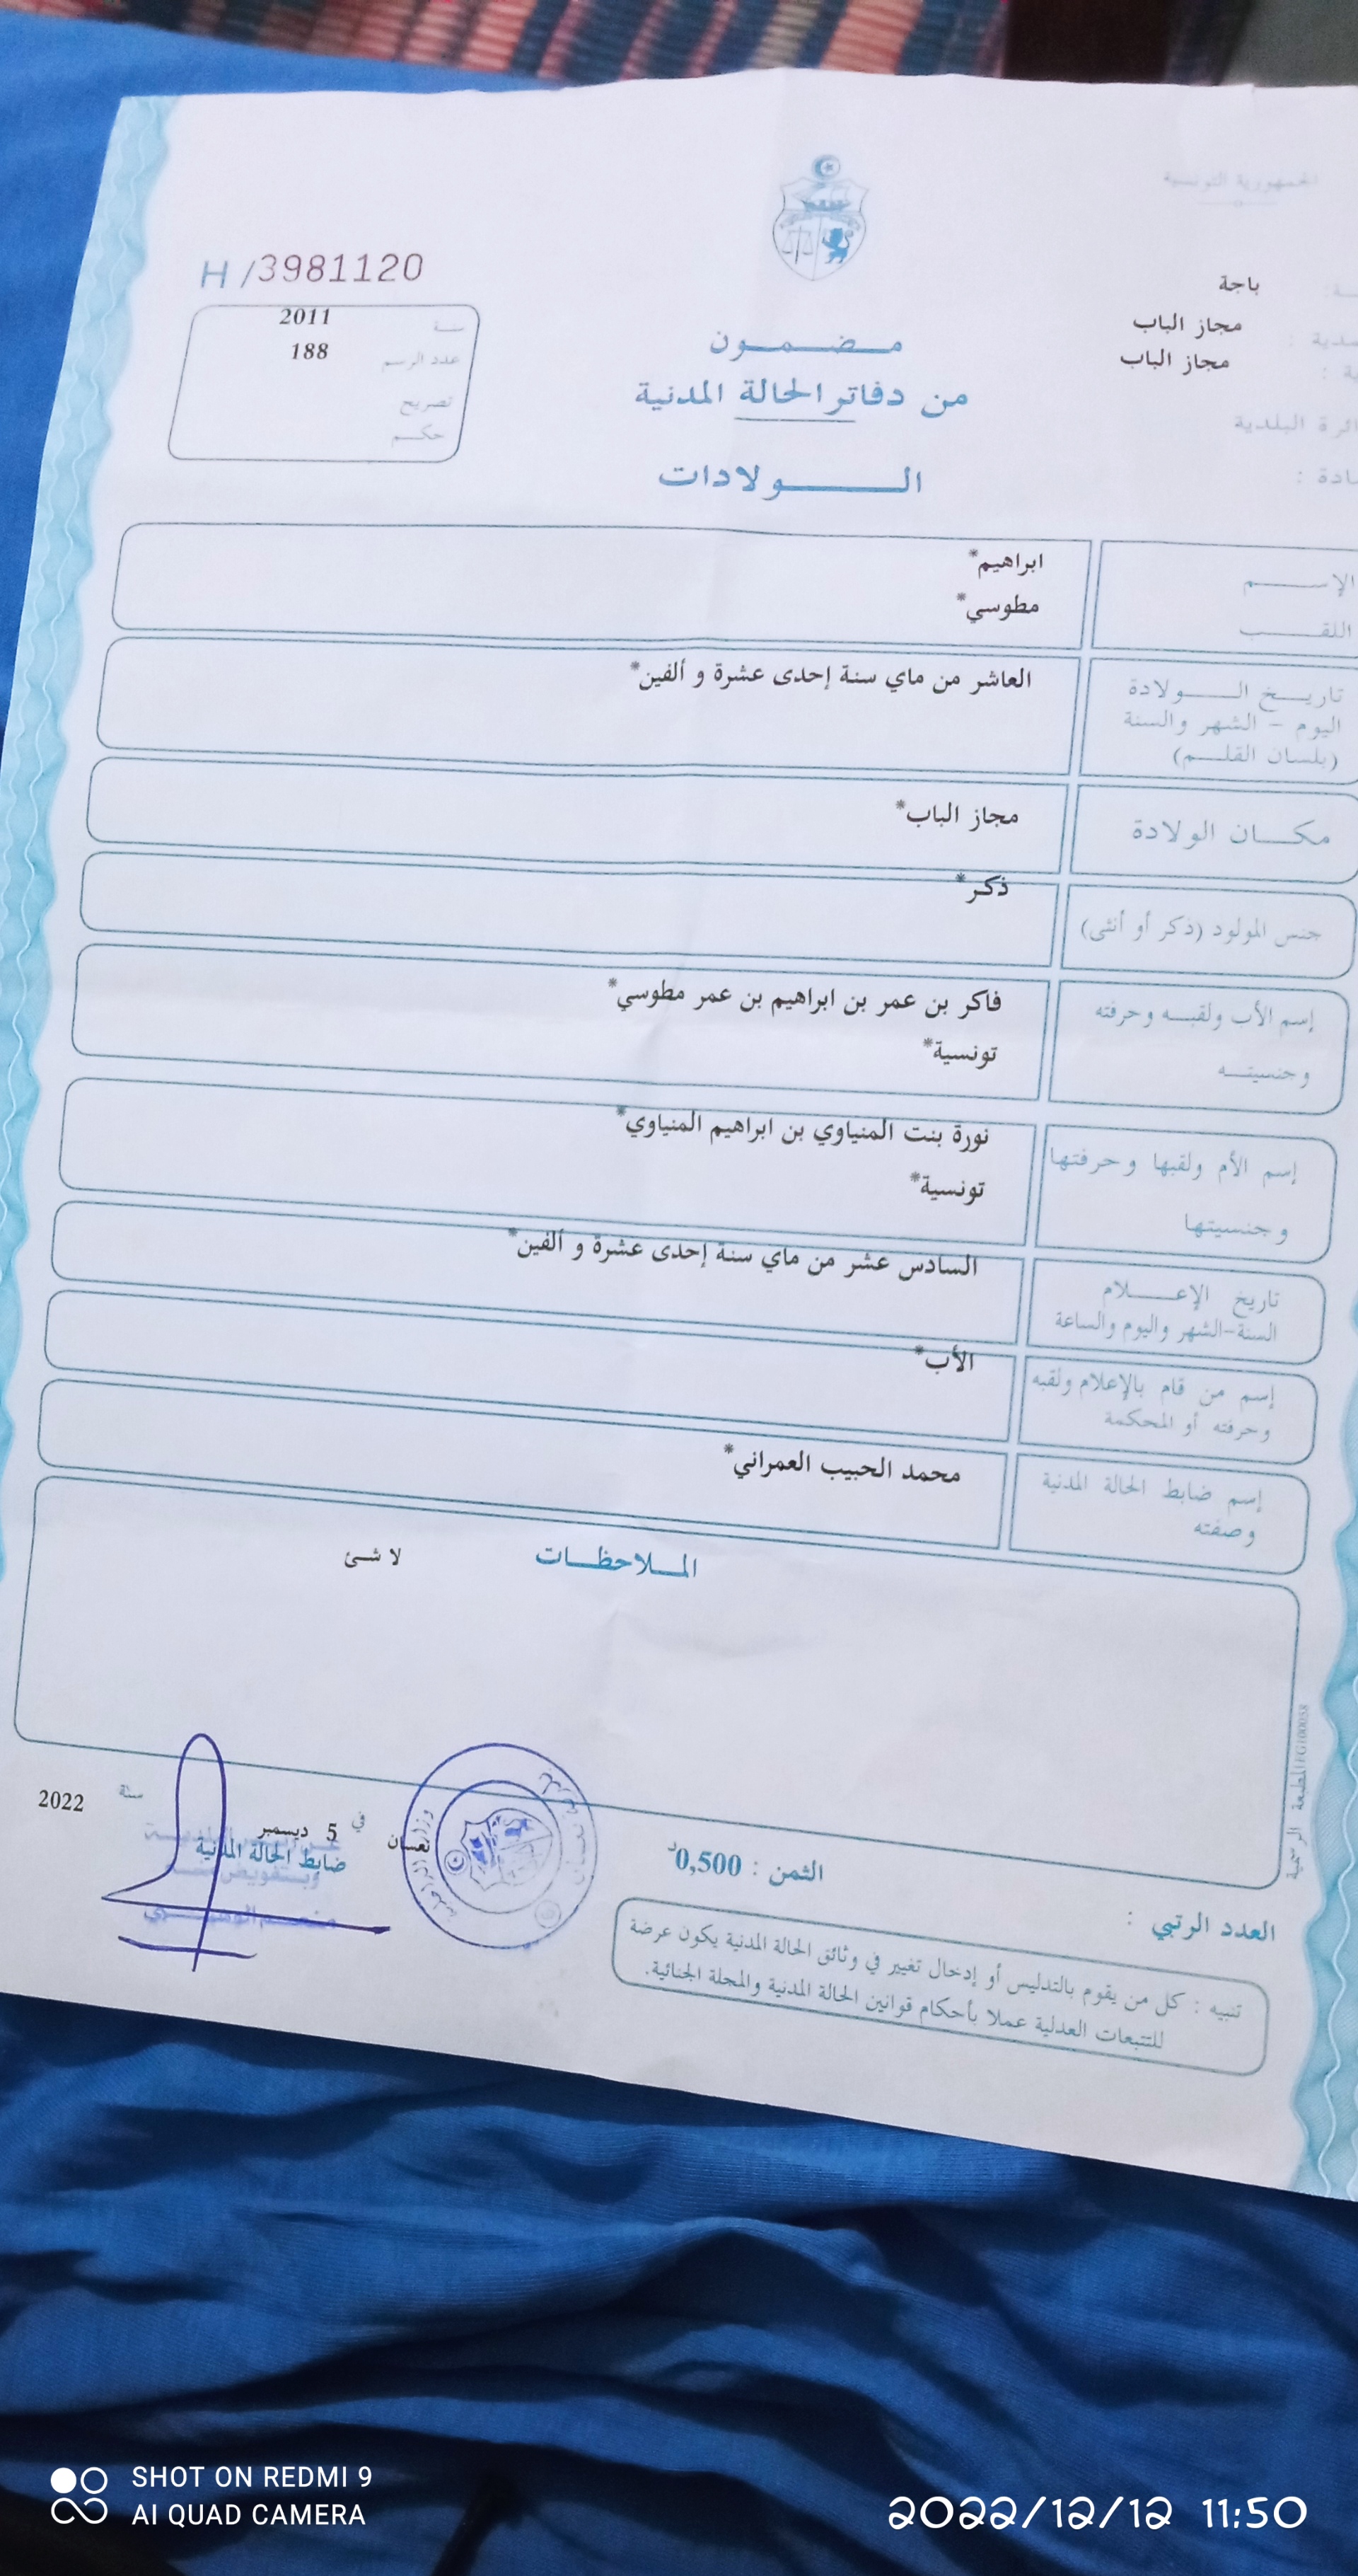 الجمهورية التونسية
H /3981120
باجة
مجاز الباب
مجاز الباب
سنة 2011
عدد الرسم 188
تصريح
حكم
مضمون
من دفاتر الحالة المدنية
الولادات
الإسم
ابراهيم*
اللقب
مطوسي*
تاريخ الولادة
اليوم - الشهر والسنة
(بلسان القلم)
العاشر من ماي سنة إحدى عشرة و ألفين*
مكان الولادة
مجاز الباب*
جنس المولود (ذكر أو أنثى)
ذكر*
إسم الأب ولقبه وحرفته
وجنسيته
فاكر بن عمر بن ابراهيم بن عمر مطوسي*
تونسية*
إسم الأم ولقبها وحرفتها
وجنسيتها
نورة بنت المنياوي بن ابراهيم المنياوي*
تونسية*
تاريخ الإعلام
السنة-الشهر واليوم والساعة
السادس عشر من ماي سنة إحدى عشرة و ألفين*
إسم من قام بالإعلام ولقبه
وحرفته أو المحكمة
الأب*
إسم ضابط الحالة المدنية
وصفته
محمد الحبيب العمراني*
الملاحظات
لا شئ
نعسان في 5 ديسمبر سنة 2022
ضابط الحالة المدنية
الثمن : 0,500د
العدد الرتبي :
تنبيه : كل من يقوم بالتدليس أو إدخال تغيير في وثائق الحالة المدنية يكون عرضة
للتتبعات العدلية عملا بأحكام قوانين الحالة المدنية والمجلة الجنائية.
المطبعة الرسمية
SHOT ON REDMI 9
AI QUAD CAMERA
2022/12/12 11:50